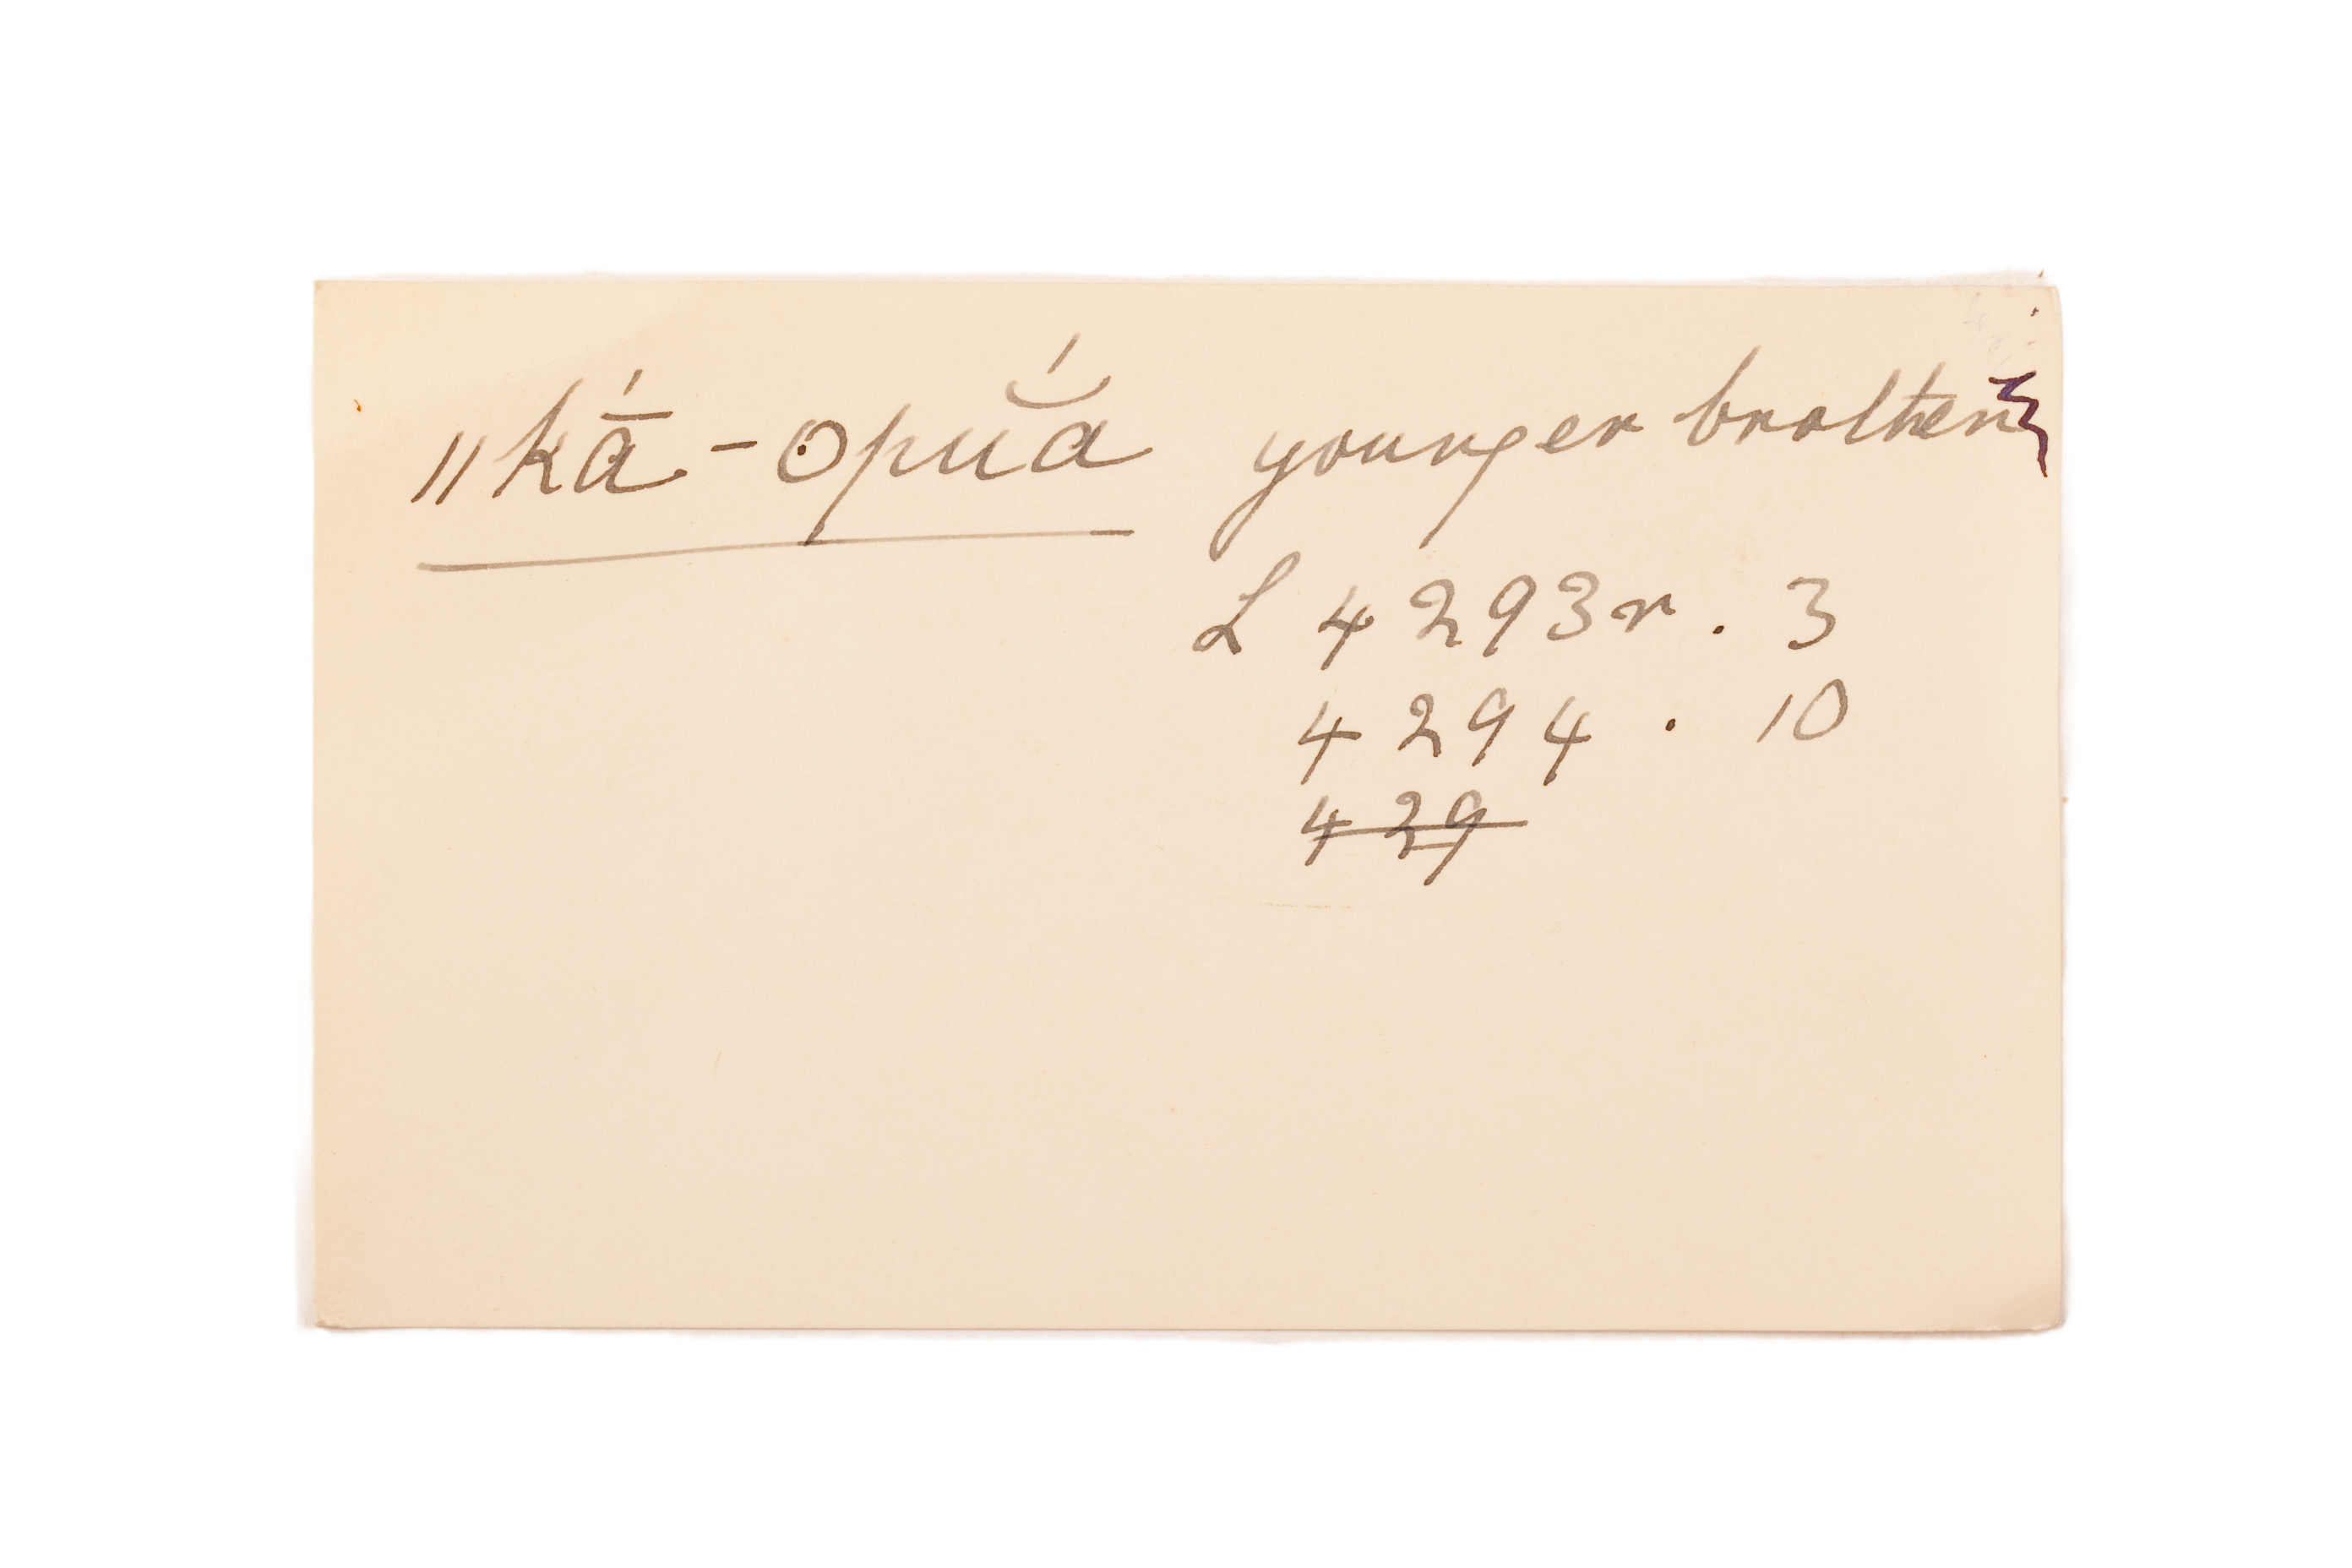 ||kā́-opuắ younger brother
L 4293r. 3
4294. 10
429